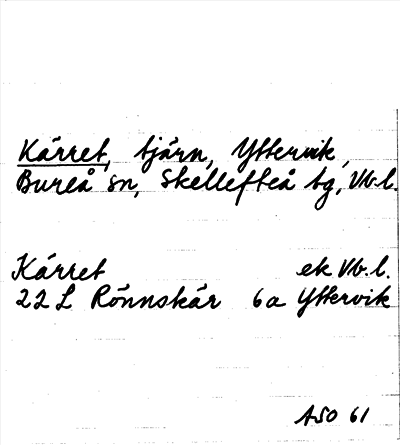 Kärret, tjärn, Yttervik,
Bureå sn, Skellefteå tg, Vb.l.
Kärret ek Vb.l.
22 L Rönnskär 6a Yttervik
ASO 61